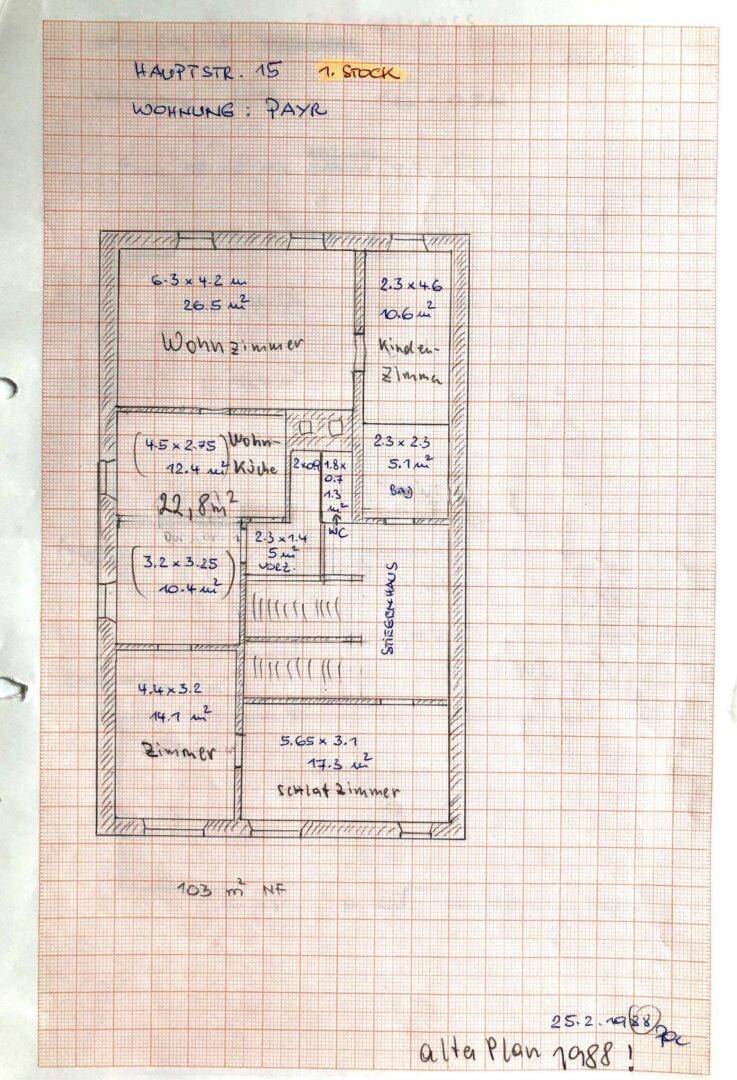 HAUPTSTR. 15 1. STOCK
WOHNUNG: PAYR
6.3 x 4.2 m
26.5 m²
Wohnzimmer
2.3 x 4.6
10.6 m²
Kinder-
Zimmer
(4.5 x 2.75)
12.4 m²
Wohn-
Küche
22,8 m²
2x0.9
1.8x
0.7
1.3
m²
WC
2.3 x 2.3
5.1 m²
BAD
(3.2 x 3.25)
10.4 m²
2.3 x 1.4
5 m²
VORZ.
STIEGENHAUS
4.4 x 3.2
14.1 m²
Zimmer
5.65 x 3.1
17.3 m²
Schlafzimmer
103 m² NF
25.2.1988
alter Plan 1988!